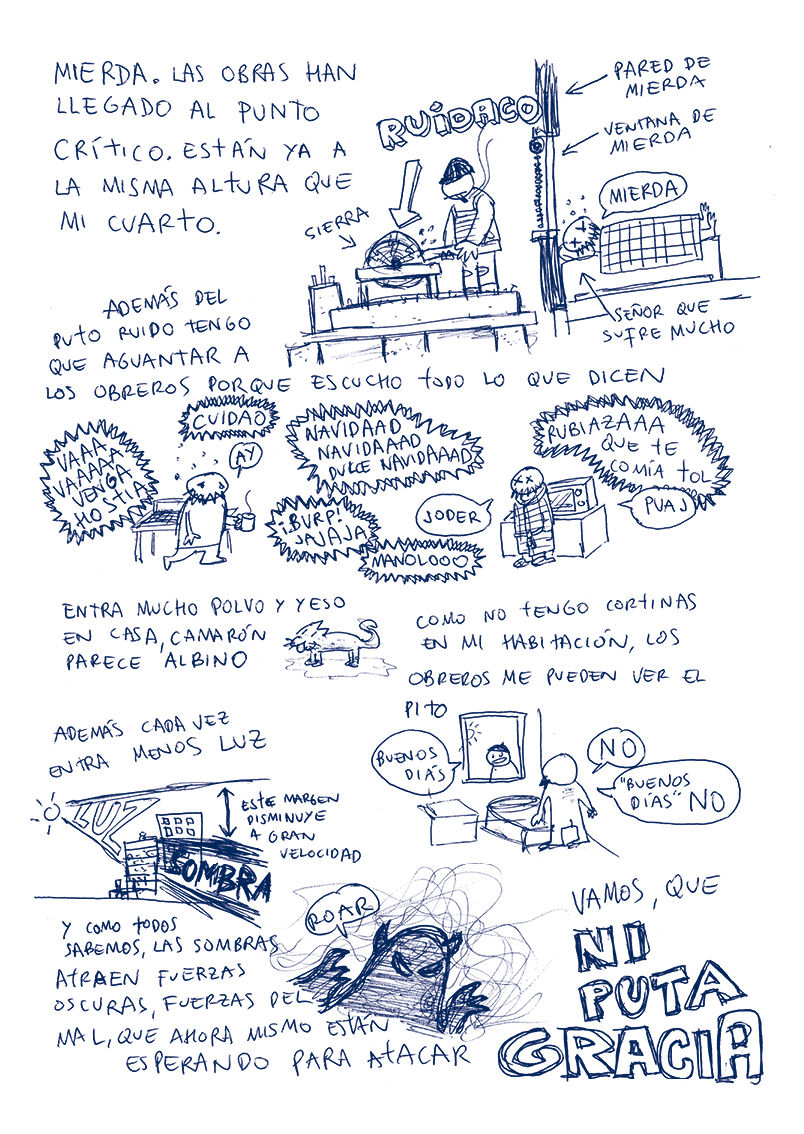 MIERDA. LAS OBRAS HAN
LLEGADO AL PUNTO
CRÍTICO. ESTÁN YA A
LA MISMA ALTURA QUE
MI CUARTO.
RUIDACO
SIERRA
PARED DE
MIERDA
VENTANA DE
MIERDA
MIERDA
SEÑOR QUE
SUFRE MUCHO
ADEMÁS DEL
PUTO RUIDO TENGO
QUE AGUANTAR A
LOS OBREROS PORQUE ESCUCHO TODO LO QUE DICEN
VAAA
VAAAAA
VENGA
HOSTIA
CUIDAO
AY
NAVIDAAD
NAVIDAAAD
DULCE NAVIDAAAD
¡BURP!
JAJAJA
MANOLOOO
JODER
RUBIAZAAA
QUE TE
COMÍA TOL
PUAJ
ENTRA MUCHO POLVO Y YESO
EN CASA, CAMARÓN
PARECE ALBINO
COMO NO TENGO CORTINAS
EN MI HABITACIÓN, LOS
OBREROS ME PUEDEN VER EL
PITO
BUENOS
DÍAS
NO
"BUENOS
DÍAS" NO
ADEMÁS CADA VEZ
ENTRA MENOS LUZ
LUZ
SOMBRA
ESTE MARGEN
DISMINUYE
A GRAN
VELOCIDAD
Y COMO TODOS
SABEMOS, LAS SOMBRAS
ATRAEN FUERZAS
OSCURAS, FUERZAS DEL
MAL, QUE AHORA MISMO ESTÁN
ESPERANDO PARA ATACAR
ROAR
VAMOS, QUE
NI
PUTA
GRACIA